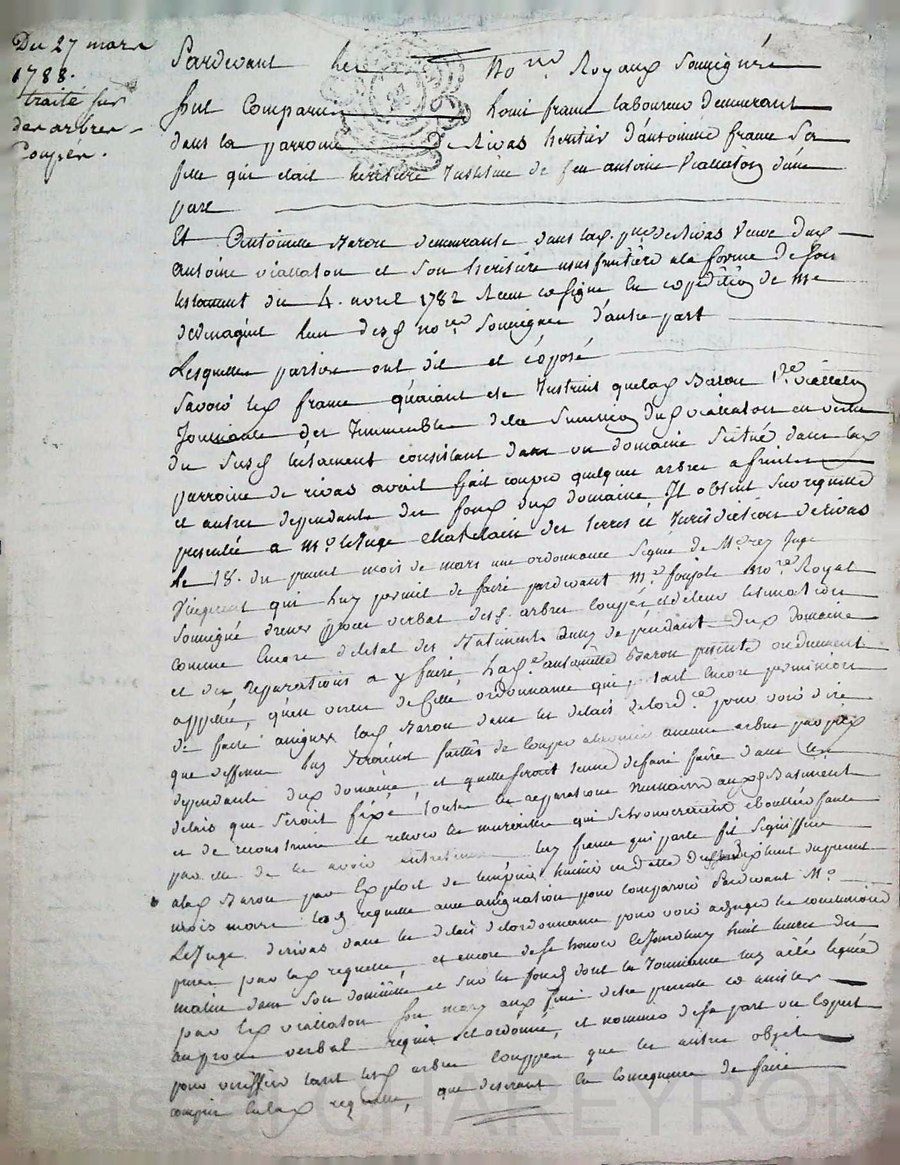 Du 27 mars
1788.
traité sur
des arbres
Coupés.
Pardevant les No.res Royaux Soussignés
fut Comparu Louis franc laboureur demeurant
dans la parroisse de Rivas heritier d'antoinette franc Sa
fille qui etait heritiere Instituée de feu antoine Viallaton d'une
part
Et Antoinette Baron demeurante dans lad. p.sse de Rivas Veuve dud.
antoine viallaton et Son heritiere usufruitiere a la forme de Son
testament du 4. avril 1782 Reçu et signé en expédition de Me
dedimagint l'un desd. no.res Soussignés d'autre part
Lesquelles parties ont dit et exposé
Savoir led. franc qu'ayant été Instruit que lad. Baron V.e viallaton
Jouissante des Immeubles de la Succession dud. viallaton en vertu
du Susd. testament consistant dans un domaine Scitué dans lad.
parroisse de rivas avait fait couper quelques arbres a fruits
et autres dependants des fonds dud. domaine Il obtint Sur requette
presentée a Mr. le Juge chatelain des terres et Jurisdiction de rivas
le 18. du present mois de mars une ordonnance Signée de Mr. rey Juge
qui luy permit de faire pardevant Me. no.re Royal
Soussigné dresser procès verbal desd. arbres coupés et de leur estimation
comme Encore de l'etat des Batiments dependants dud. domaine
et des reparations a y faire, lad. antoinette Baron presente ou duement
appellée, qu'en vertu de cette ordonnance qui portait encore permission
de faire assigner lad. Baron dans les delais de l'ord.ce pour voir dire
que deffenses luy Seroient faittes de couper a l'avenir aucuns arbres
dependants dud. domaine, et qu'elle Seroit tenue de faire faire dans les
delais qui Seroit fixé toutes les reparations Necessaires auxd. Batiments
et de reconstruire et relever les murailles qui Se trouveroient eboulées faute
par elle de les avoir entretenues led. franc qui parle fit Signiffier
a lad. Baron par Exploit de huissier en datte du present
mois mars lad. requette avec assignation pour comparoir Pardevant Mr.
Le Juge de rivas dans les delais de l'ordonnance pour voir adjuger les conclusions
prises par lad. requette, et encore de Se trouver le Jourdhuy huit heures du
matin dans Son domicille et Sur les fonds dont la Jouissance luy a été leguée
par led. viallaton Son mary aux fins d'etre presente et assister
au procès verbal requis et ordonné, et nommer de Sa part un Expert
pour veriffier tant lesd. arbres couppés que les autres objets
compris en lad. requette, que desirant les consequences de faire